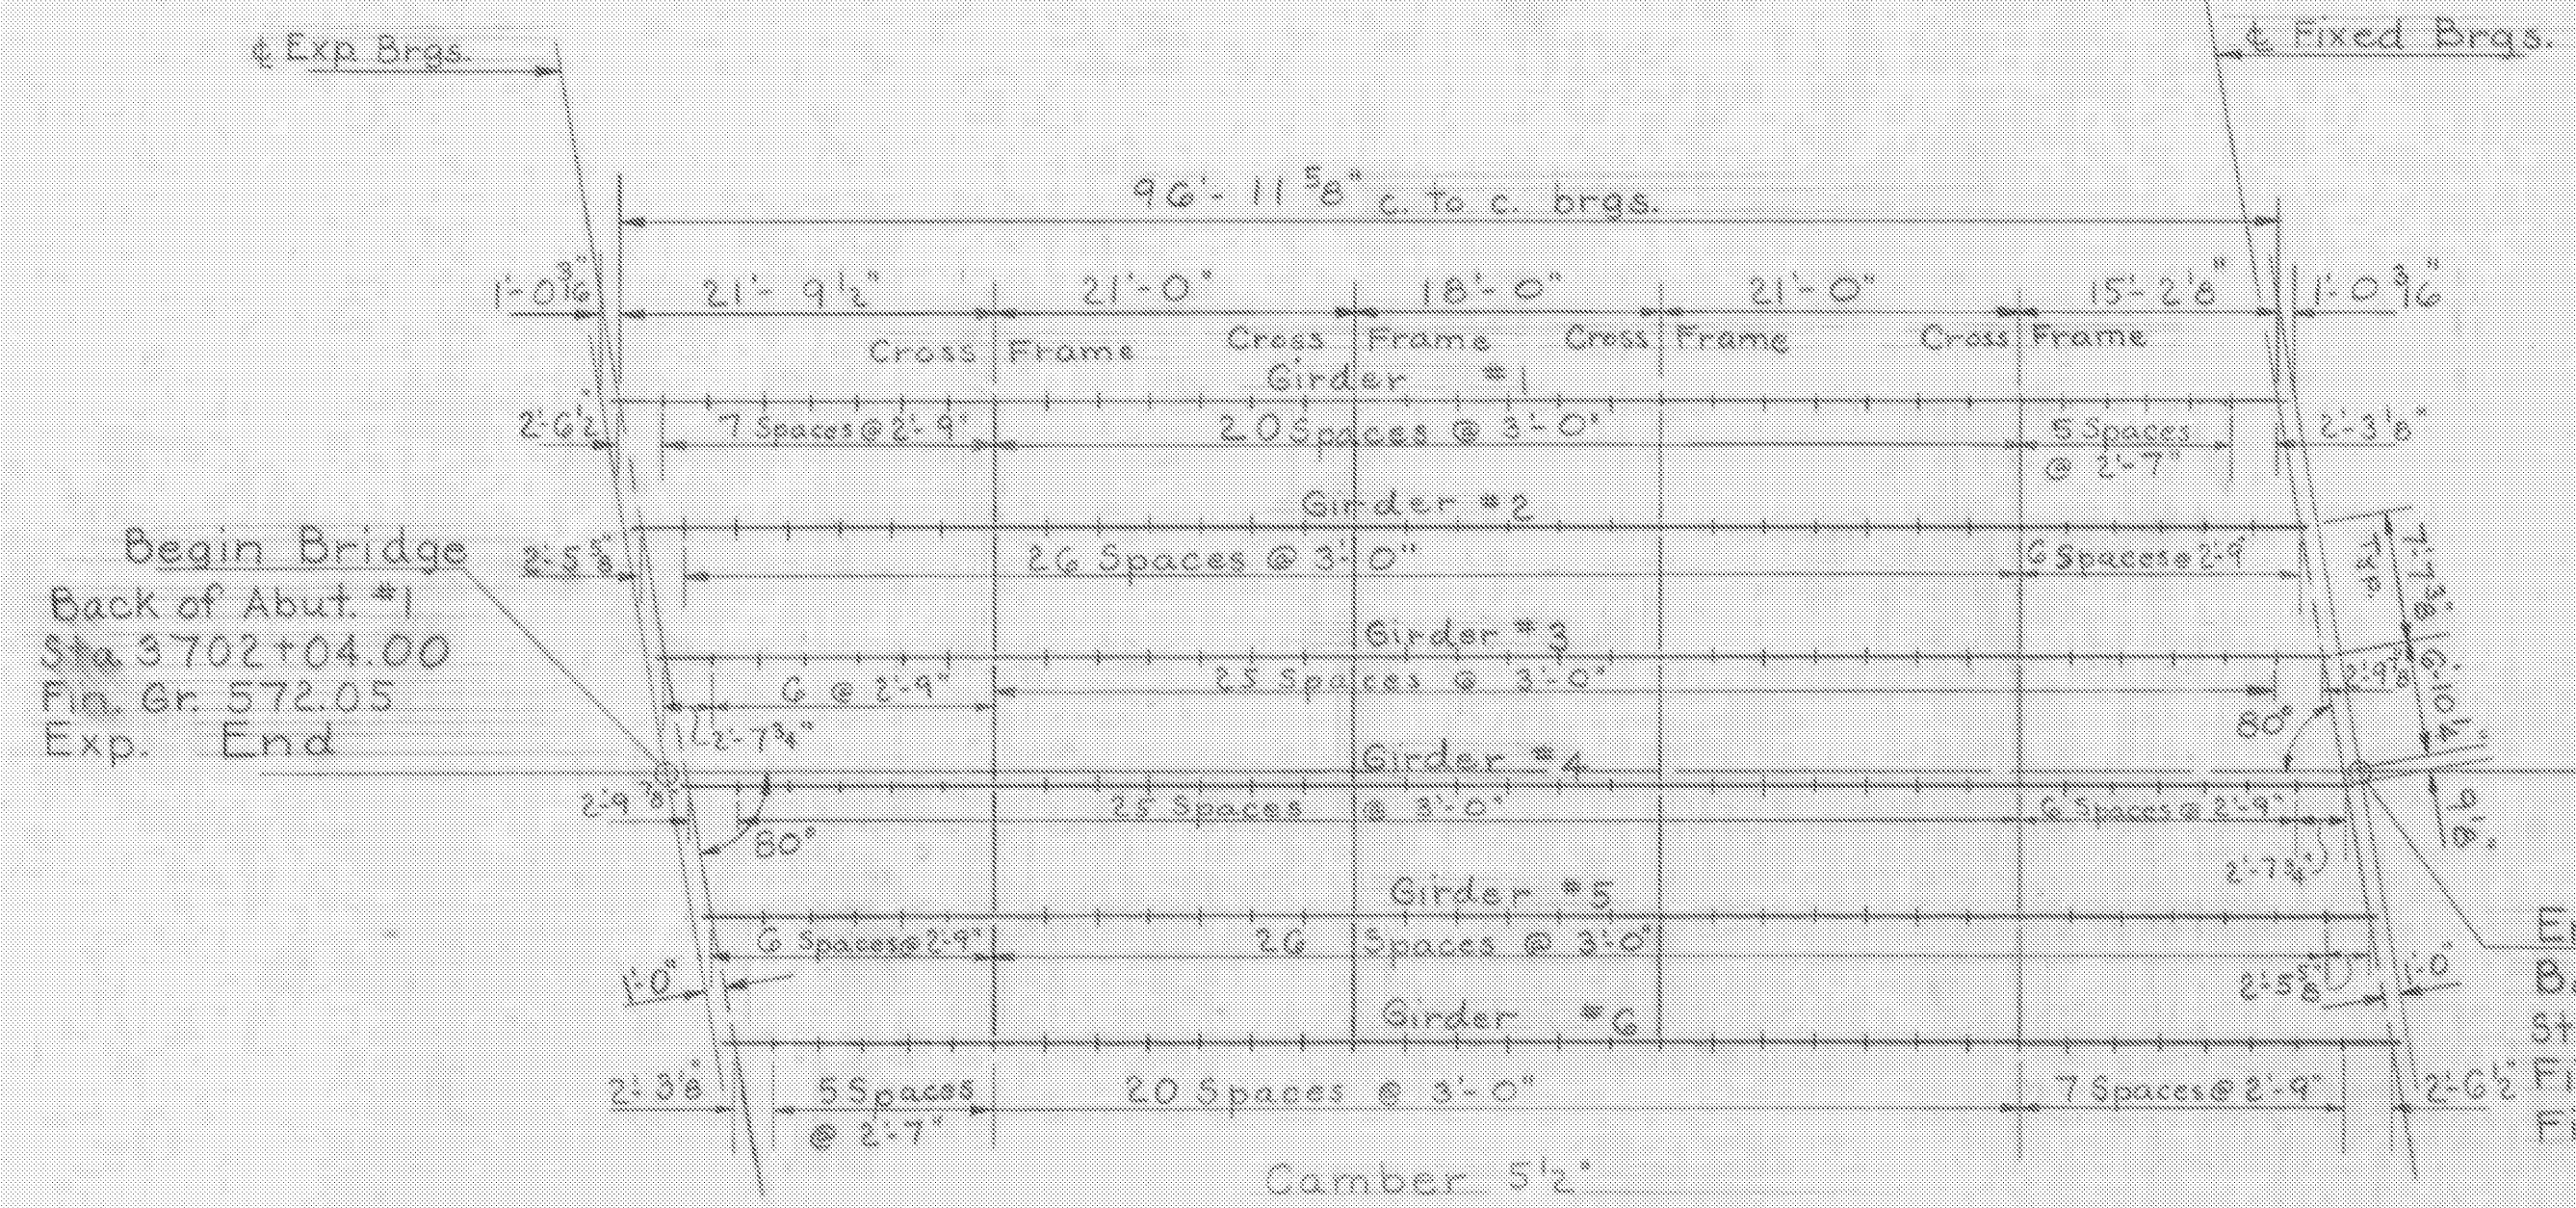 ℄ Exp. Brgs.
℄ Fixed Brgs.
96'-11 5/8" c. to c. brgs.
1'-0 3/16"
21'-9 1/2"
21'-0"
18'-0"
21'-0"
15'-2 1/8"
1'-0 3/16"
Cross Frame
Cross Frame
Cross Frame
Cross Frame
Girder #1
2'-6 1/2"
7 Spaces @ 2'-9"
20 Spaces @ 3'-0"
5 Spaces
@ 2'-7"
2'-3 1/8"
Girder #2
2'-5 5/8"
26 Spaces @ 3'-0"
6 Spaces @ 2'-9"
Begin Bridge
Back of Abut. #1
Sta 3702+04.00
Fin. Gr. 572.05
Exp. End
Girder #3
6 @ 2'-9"
25 Spaces @ 3'-0"
2'-9 7/8"
2'-7 3/4"
80°
Girder #4
2'-9 7/8"
25 Spaces @ 3'-0"
6 Spaces @ 2'-9"
80°
2'-7 3/4"
Girder #5
6 Spaces @ 2'-9"
26 Spaces @ 3'-0"
1'-0"
2'-5 5/8"
1'-0"
Girder #6
2'-3 1/8"
5 Spaces
@ 2'-7"
20 Spaces @ 3'-0"
7 Spaces @ 2'-9"
2'-6 1/2"
Camber 5 1/2"